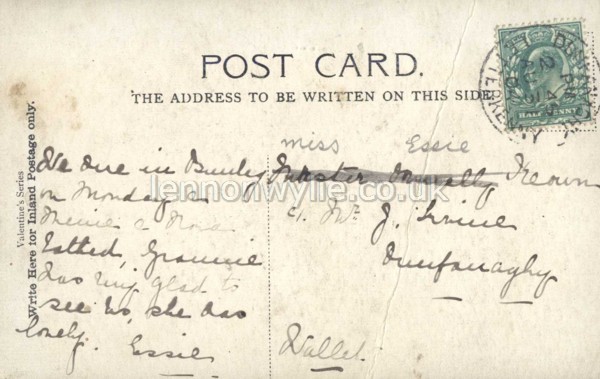 POST CARD.
THE ADDRESS TO BE WRITTEN ON THIS SIDE
Valentine's Series
Write Here for Inland Postage only.
HALFPENNY
lennonwylie.co.uk
We are in
on Monday &
& Nora
bathed, Grannie
was very glad to
see us, she was
lonely.
Essie
Miss Essie
Keown
c/o Mrs
J. Irvine
Dunfanaghy